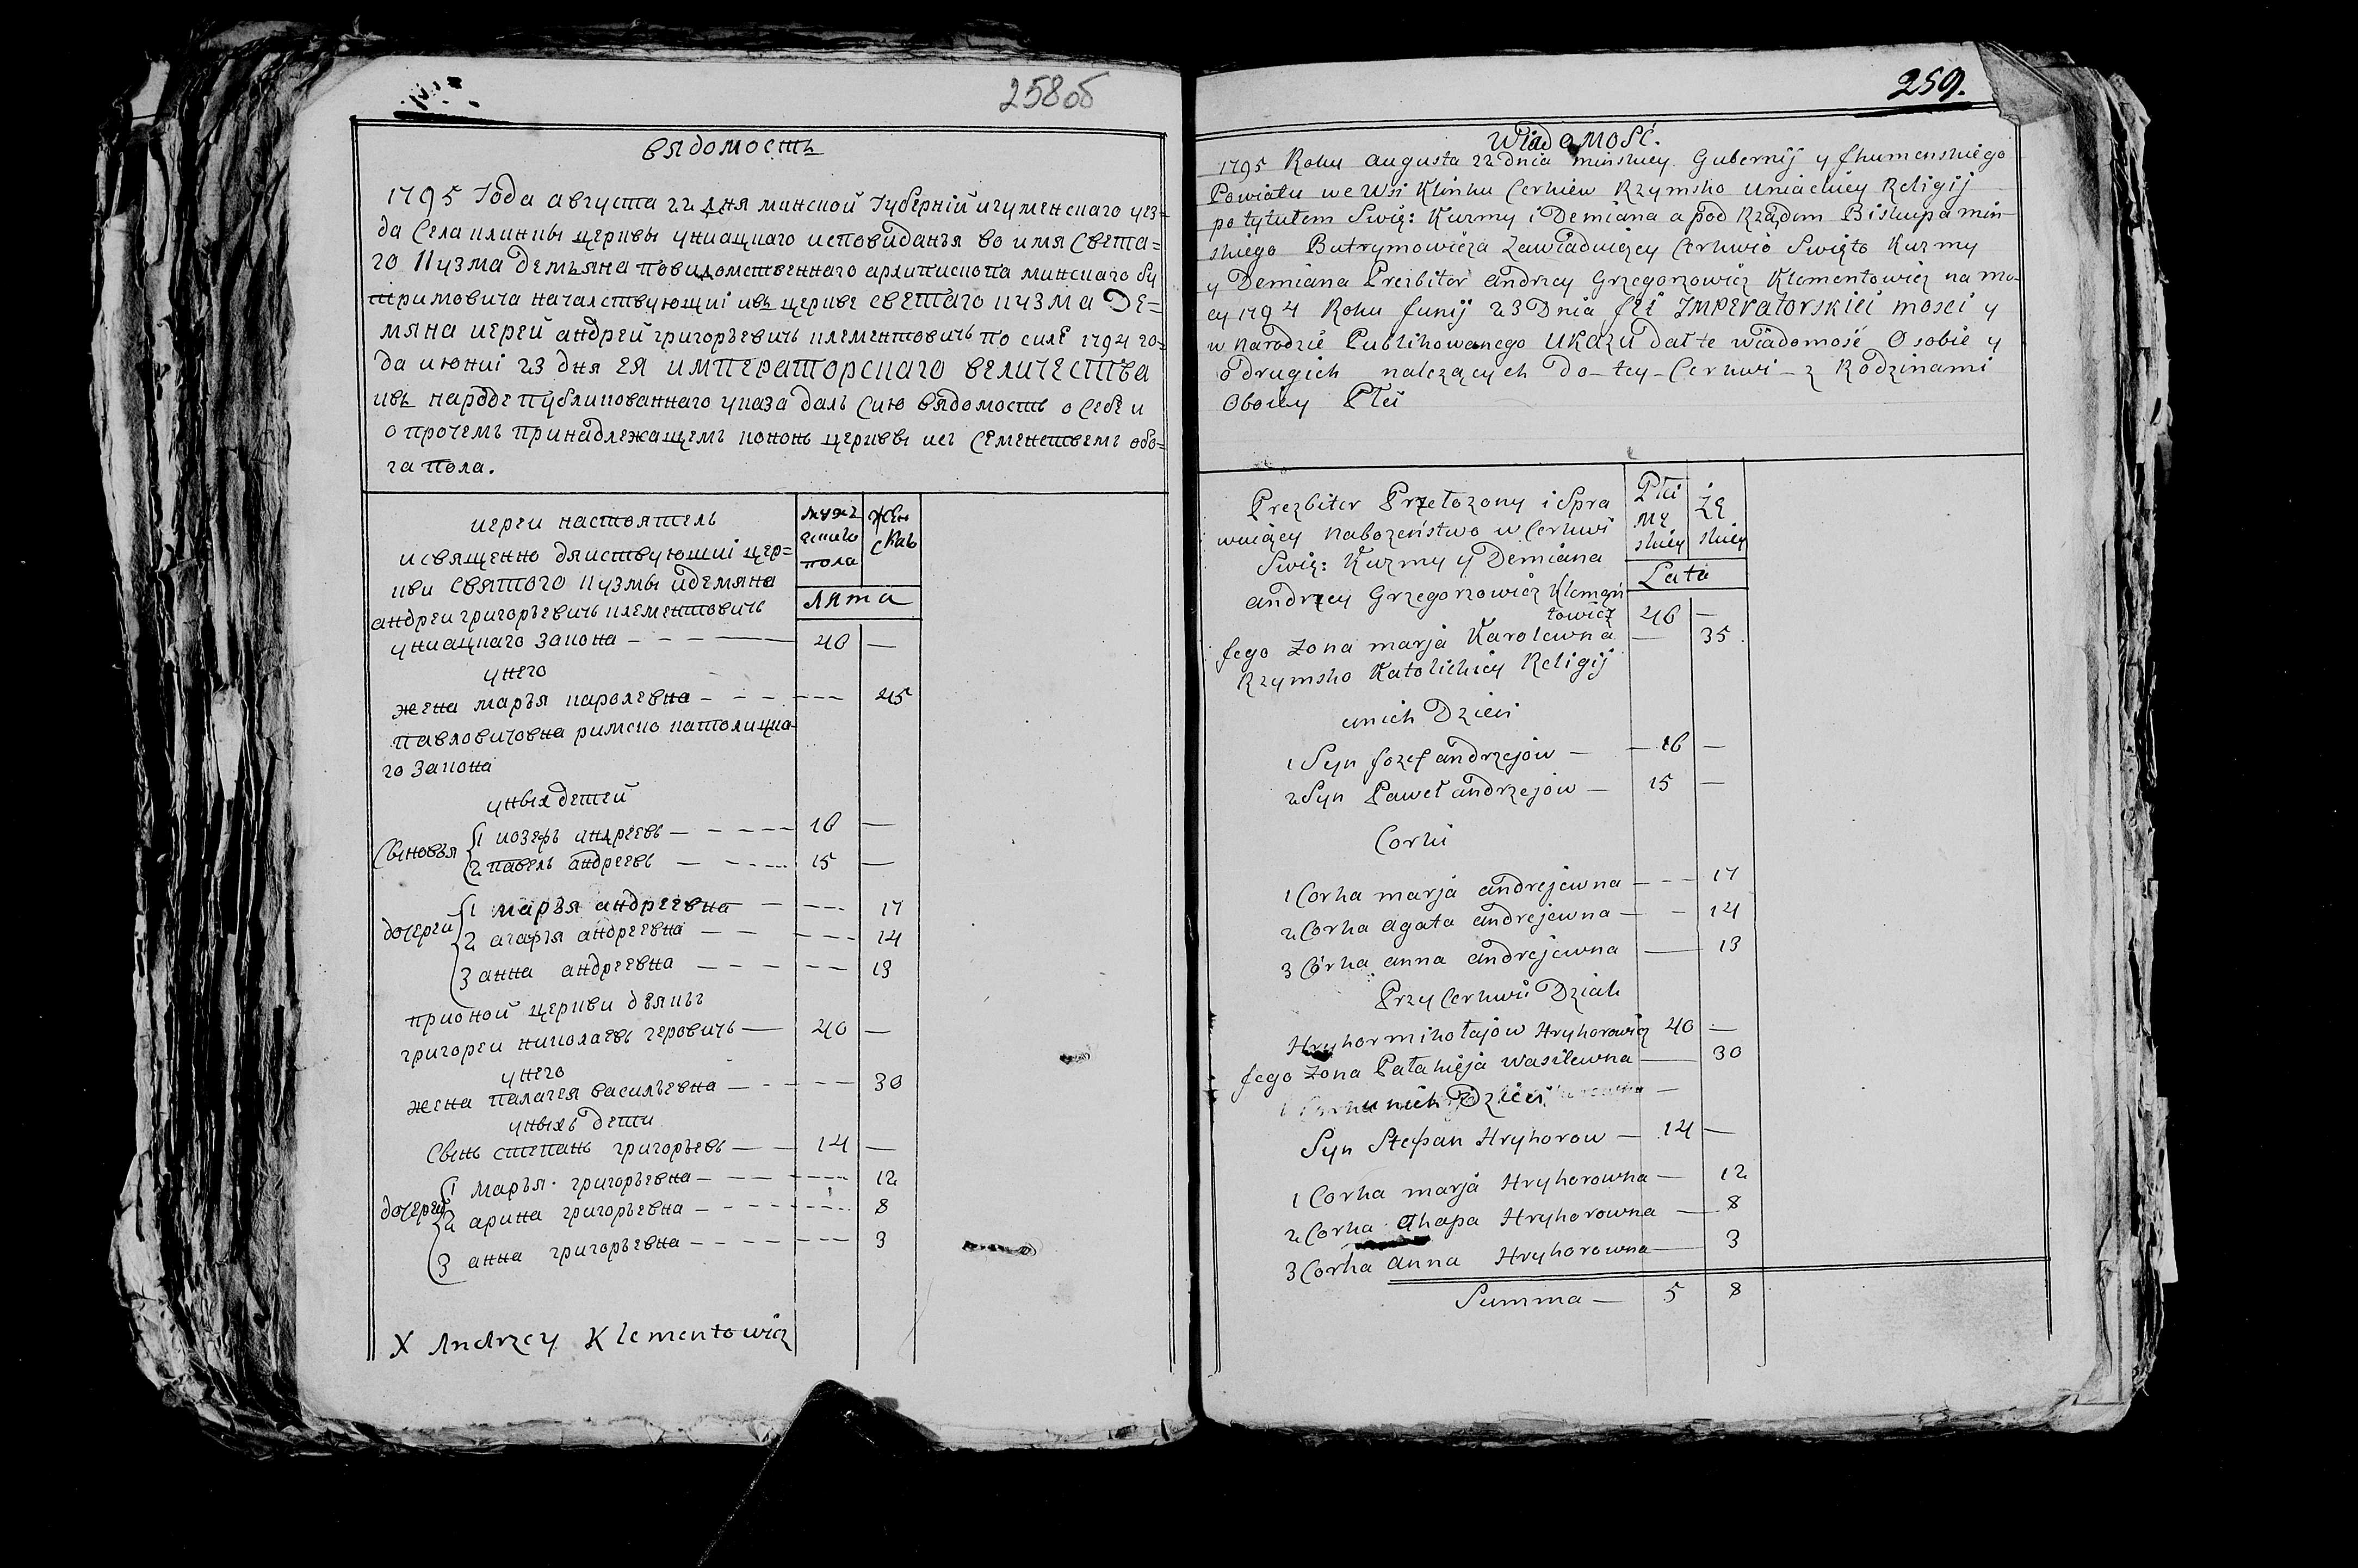 258об
вядомость
1795 Года августа 22 дня минской Губерній игуменскаго уез=
да Села клинки церквы униацкаго исповиданъя во имя Света=
го Кузма демъяна повидомственнаго архипископа минскаго бу
тримовича началствующиі ивъ церкве светаго кузма Де=
мяна иерей андрей григоръевичь клементовичь по силе 1794 го=
да июниі 23 дня ея императорскаго величества
ивъ народе публикованнаго указа далъ Сию вядомость о Себе и
о прочемъ принадлежащемъ коконь церквы исъ Семенствемъ обо=
га пола.
иереи настоятель
исвященно дяиствующиі цер=
кви святого кузмы идемяна
андреи григоръевичь клементовичь
униацкаго закона — 46 —
мужъ
ескаго
пола
жен
скаго
лята
унего
жена маръя каролевна — 45
павловичовна римско католицка
го закона
уныхдетей
Сыновья
1 иозефъ андреевъ — 16 —
2 павелъ андреевъ — 15 —
дочереи
1 маръя андреевна — 17
2 агаръя андреевна — 14
3 анна андреевна — 13
прионой церкви деякъ
григореи николаевъ геровичь — 40 —
унего
жена палагея василъевна — 30
уныхъ дети
Сынъ степанъ григоръевъ — 14 —
дочереи
1 маръя григоръевна — 12
2 арина григоръевна — 8
3 анна григоръевна — 3
X Andrzey Klementowicz
259.
Wiadomość.
1795 Roku augusta 22 dnia minskiey Gubernij y Jhumenskiego
Powiatu we Wsi Klinku Cerkiew Rzymsko Uniackiey Religij
po tytułem Swię: Kuzmy i Demiana a pod Rządem Biskupa min=
skiego Butrymowicza Zawiaduiący Cerkwio Swięto Kuzmy
y Demiana Prezbiter andrzey Grzegorzowicz Klementowicz na mo=
cy 1794 Roku Junij 23 Dnia Jei Imperatorskiei mosci y
w narodzie Publikowanego Ukazu dał te wiadomość O sobie y
o drugich należących Do tey Cerkwi z Rodzinami
Oboiey Płci
Prezbiter Przełozony i Spra
wuiący nabożeństwo w Cerkwi
Swię: Kuzmy y Demiana
andrzey Grzegorzowicz Klemen
towicz 46 —
Płci
mę
skiey
żę
skiey
Lata
Jego Zona marja Karolewna — 35
Rzymsko Katolickiey Religij
unich Dzieci
1 Syn Jozef andrzejów — 16 —
2 Syn Paweł andrzejow — 15 —
Corki
1 Corka marja andrejewna — 17
2 Corka agata andrejewna — 14
3 Córka anna andrejewna — 13
Przy Cerkwii Dziak
Hryhor mikołajow Hryhorowicz 40 —
Jego Zona Pałahięja wasilewna — 30
unich Dzieci
Syn Stefan Hryhorow — 14 —
1 Corka marja Hryhorowna — 12
2 Corka ahapa Hryhorowna — 8
3 Corka anna Hryhorowna — 3
Summa — 5 8